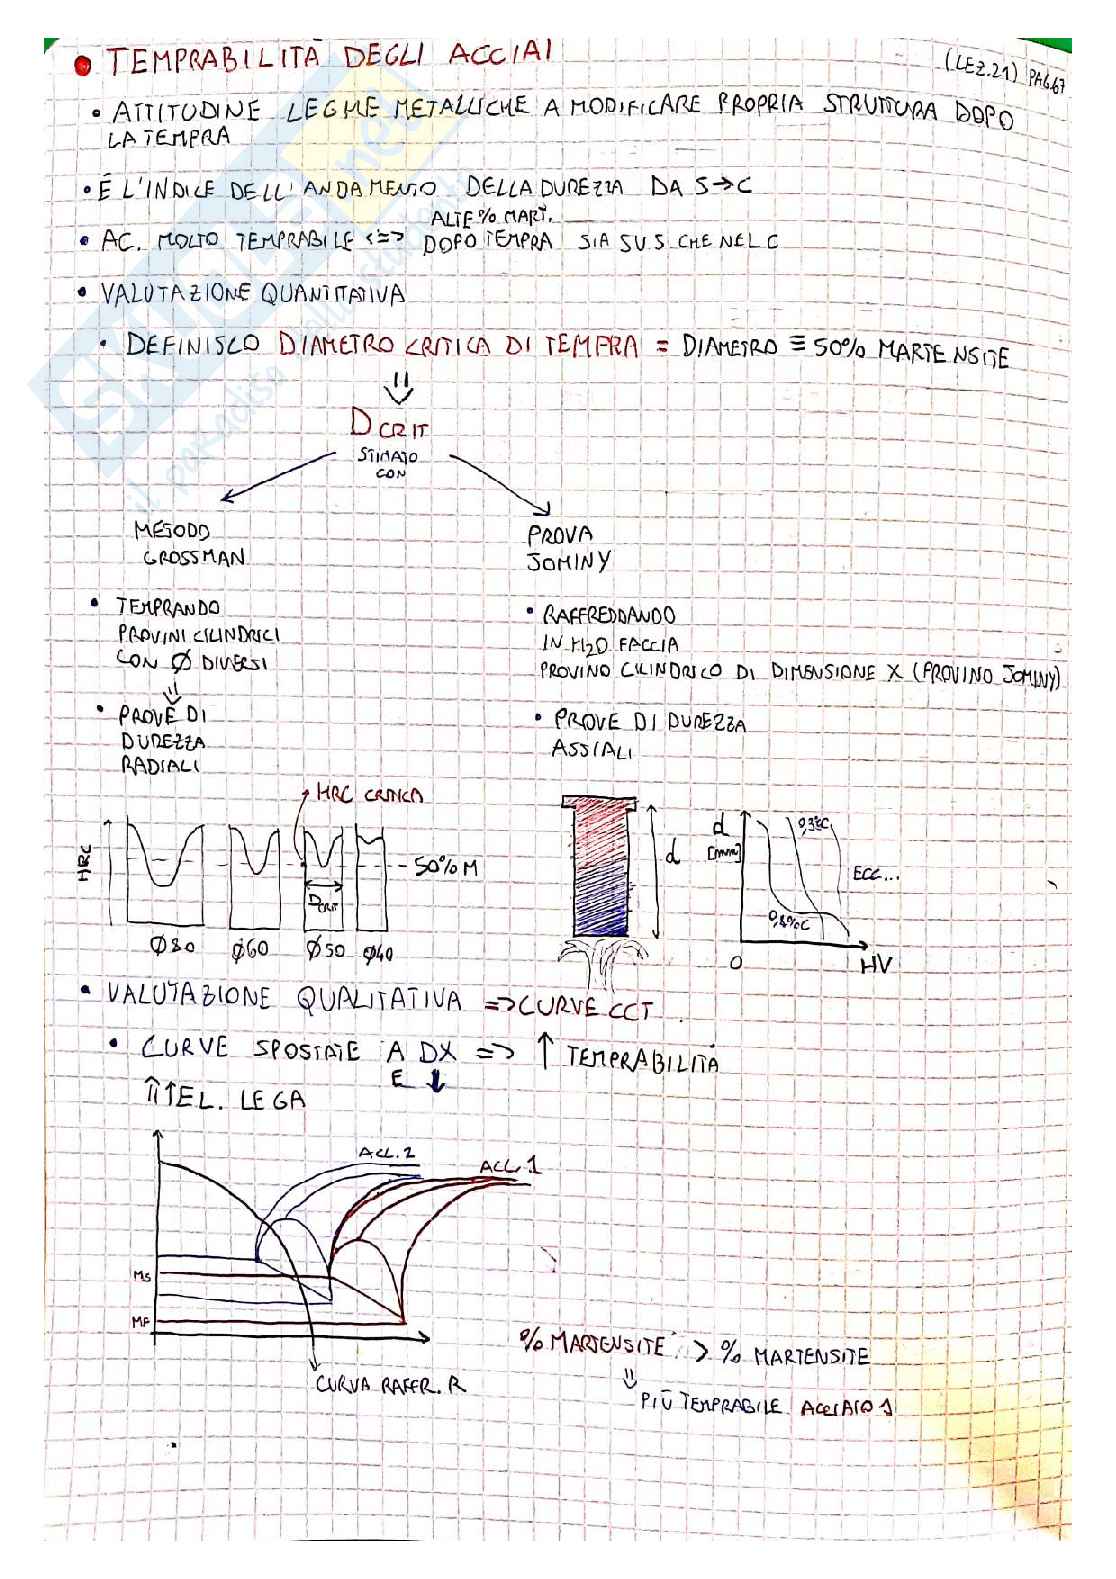 • TEMPRABILITÀ DEGLI ACCIAI
(LEZ.21) PAG.67
• ATTITUDINE LEGHE METALLICHE A MODIFICARE PROPRIA STRUTTURA DOPO
LA TEMPRA
• È L'INDICE DELL'ANDAMENTO DELLA DUREZZA DA S→C
ALTE % MART.
• AC. MOLTO TEMPRABILE <=> DOPO TEMPRA SIA SU S CHE NEL C
• VALUTAZIONE QUANTITATIVA
• DEFINISCO DIAMETRO CRITICA DI TEMPRA = DIAMETRO ≡ 50% MARTENSITE
⇓
D CRIT
STIMATO
CON
METODO
GROSSMAN
PROVA
JOMINY
• TEMPRANDO
PROVINI CILINDRICI
CON Ø DIVERSI
⇓
• PROVE DI
DUREZZA
RADIALI
• RAFFREDDANDO
IN H2O FACCIA
PROVINO CILINDRICO DI DIMENSIONE X (PROVINO JOMINY)
• PROVE DI DUREZZA
ASSIALI
HRC CRITICA
HRC
50% M
DCRIT
Ø80 Ø60 Ø50 Ø40
d
d
[mm]
0,3%C
ECC...
0,8%C
O
HV
• VALUTAZIONE QUALITATIVA => CURVE CCT
• CURVE SPOSTATE A DX => ↑ TEMPRABILITÀ
E ↓
⇑ ↑ EL. LEGA
ACC. 2
ACC. 1
MS
MF
CURVA RAFFR. R
% MARTENSITE > % MARTENSITE
⇓
PIÙ TEMPRABILE ACCIAIO 1